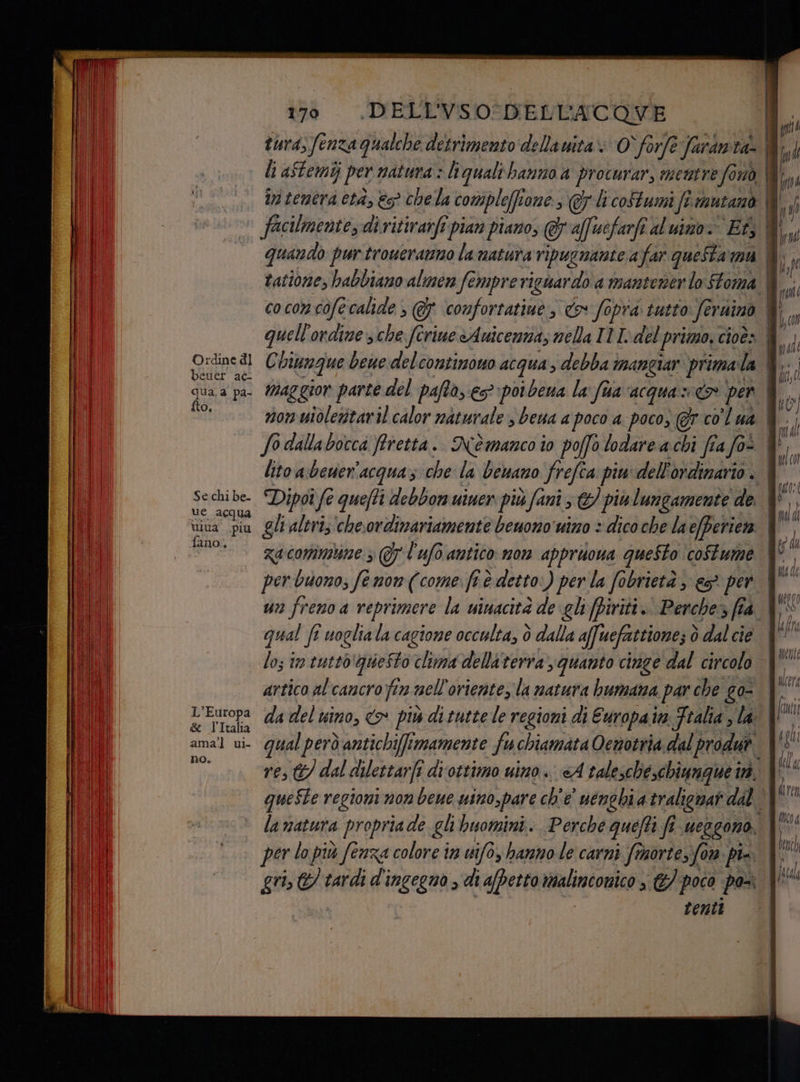 170 DELL'VSO DELL'ACQVE
tura, ſenza qualche detrimento della uita. O' forſe ſaran ta-
li aſtemij per natura: li quali hanno a procurar, mentre ſono
in tenera età, & che la compleſſione, & li coſtumi ſi mutano
facilmente, di ritirarſi pian piano, & aſſuefarſi al uino. Et,
quando pur troueranno la natura ripugnante a far queſta mu
tatione, habbiano almen ſempre riguardo a mantener lo ſtoma
co con coſe calide, & confortatiue, & ſopra tutto ſeruino
quell'ordine, che ſcriue Auicenna, nella III. del primo, cioè:
Ordine d'l
beuer ac-
qua a pa-
ſto.
Chiunque beue del continouo acqua, debba mangiar prima la
maggior parte del paſto, & poi beua la ſua acqua: & per
non uiolentar il calor naturale, beua a poco a poco, & co'l ua
ſo dalla bocca ſtretta. Nè manco io poſſo lodare a chi ſia ſo-
lito a beuer'acqua, che la beuano freſca piu dell'ordinario.
Se chi be-
ue acqua
uiua piu
ſano.
Dipoi ſe queſti debbon uiuer più ſani, & piu lungamente de
gli altri, che ordinariamente beuono uino: dico che la eſperien
za commune, & l'uſo antico non appruoua queſto coſtume
per buono, ſe non (come ſi è detto) per la ſobrietà, & per
un freno a reprimere la uiuacità de gli ſpiriti. Perche, ſia
qual ſi uoglia la cagione occulta, ò dalla aſſuefattione, ò dal cie
lo; in tutto queſto clima della terra, quanto cinge dal circolo
artico al cancro fin nell'oriente, la natura humana par che go-
L'Europa
& l'Italia
ama'l ui-
no.
da del uino, & più di tutte le regioni di Europa in Italia, la
qual però antichiſſimamente fu chiamata Oenotria dal produr
re, & dal dilettarſi di ottimo uino. A tale, che, chiunque in
queſte regioni non beue uino, pare ch'e' uenghi a tralignar dal
la natura propria de gli huomini. Perche queſti ſi ueggono
per lo più ſenza colore in uiſo, hanno le carni ſmorte, ſon pi-
gri, & tardi d'ingegno, di aſpetto malinconico, & poco po-
tenti